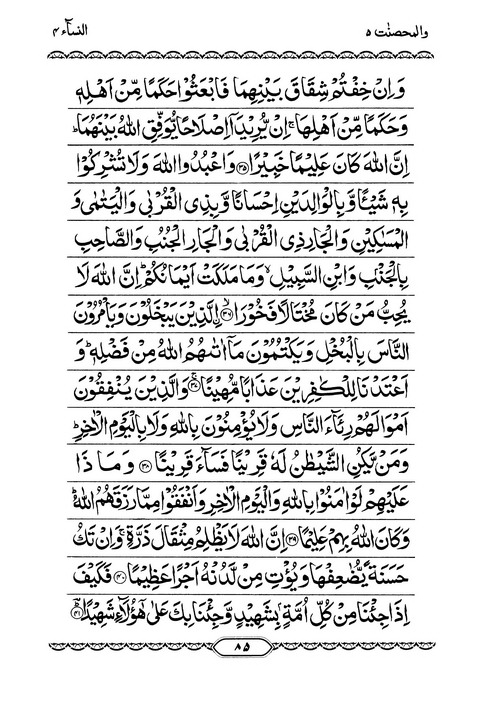 والمحصنت ۵ النسآء ۴
وَاِنْ خِفْتُمْ شِقَاقَ بَيْنِهِمَا فَابْعَثُوْا حَكَمًا مِّنْ اَهْلِهٖ
وَحَكَمًا مِّنْ اَهْلِهَا ۚ اِنْ يُّرِيْدَاۤ اِصْلَاحًا يُّوَفِّقِ اللّٰهُ بَيْنَهُمَا ؕ
اِنَّ اللّٰهَ كَانَ عَلِيْمًا خَبِيْرًا ﴿۳۵﴾ وَاعْبُدُوا اللّٰهَ وَلَا تُشْرِكُوْا
بِهٖ شَيْـًٔا وَّبِالْوَالِدَيْنِ اِحْسَانًا وَّبِذِى الْقُرْبٰى وَالْيَتٰمٰى وَ
الْمَسٰكِيْنِ وَالْجَارِ ذِى الْقُرْبٰى وَالْجَارِ الْجُنُبِ وَالصَّاحِبِ
بِالْجَنْۢبِ وَابْنِ السَّبِيْلِ ۙ وَمَا مَلَكَتْ اَيْمَانُكُمْ ؕ اِنَّ اللّٰهَ لَا
يُحِبُّ مَنْ كَانَ مُخْتَالًا فَخُوْرًا ﴿۳۶﴾ ۙ الَّذِيْنَ يَبْخَلُوْنَ وَيَاْمُرُوْنَ
النَّاسَ بِالْبُخْلِ وَيَكْتُمُوْنَ مَاۤ اٰتٰىهُمُ اللّٰهُ مِنْ فَضْلِهٖ ؕ وَ
اَعْتَدْنَا لِلْكٰفِرِيْنَ عَذَابًا مُّهِيْنًا ﴿۳۷﴾ ۚ وَالَّذِيْنَ يُنْفِقُوْنَ
اَمْوَالَهُمْ رِئَآءَ النَّاسِ وَلَا يُؤْمِنُوْنَ بِاللّٰهِ وَلَا بِالْيَوْمِ الْاٰخِرِ ؕ
وَمَنْ يَّكُنِ الشَّيْطٰنُ لَهٗ قَرِيْنًا فَسَآءَ قَرِيْنًا ﴿۳۸﴾ وَمَا ذَا
عَلَيْهِمْ لَوْ اٰمَنُوْا بِاللّٰهِ وَالْيَوْمِ الْاٰخِرِ وَاَنْفَقُوْا مِمَّا رَزَقَهُمُ اللّٰهُ ؕ
وَكَانَ اللّٰهُ بِهِمْ عَلِيْمًا ﴿۳۹﴾ اِنَّ اللّٰهَ لَا يَظْلِمُ مِثْقَالَ ذَرَّةٍ ۚ وَاِنْ تَكُ
حَسَنَةً يُّضٰعِفْهَا وَيُؤْتِ مِنْ لَّدُنْهُ اَجْرًا عَظِيْمًا ﴿۴۰﴾ فَكَيْفَ
اِذَا جِئْنَا مِنْ كُلِّ اُمَّةٍۭ بِشَهِيْدٍ وَّجِئْنَا بِكَ عَلٰى هٰٓؤُلَآءِ شَهِيْدًا ﴿۴۱﴾ ؕ
۸۵